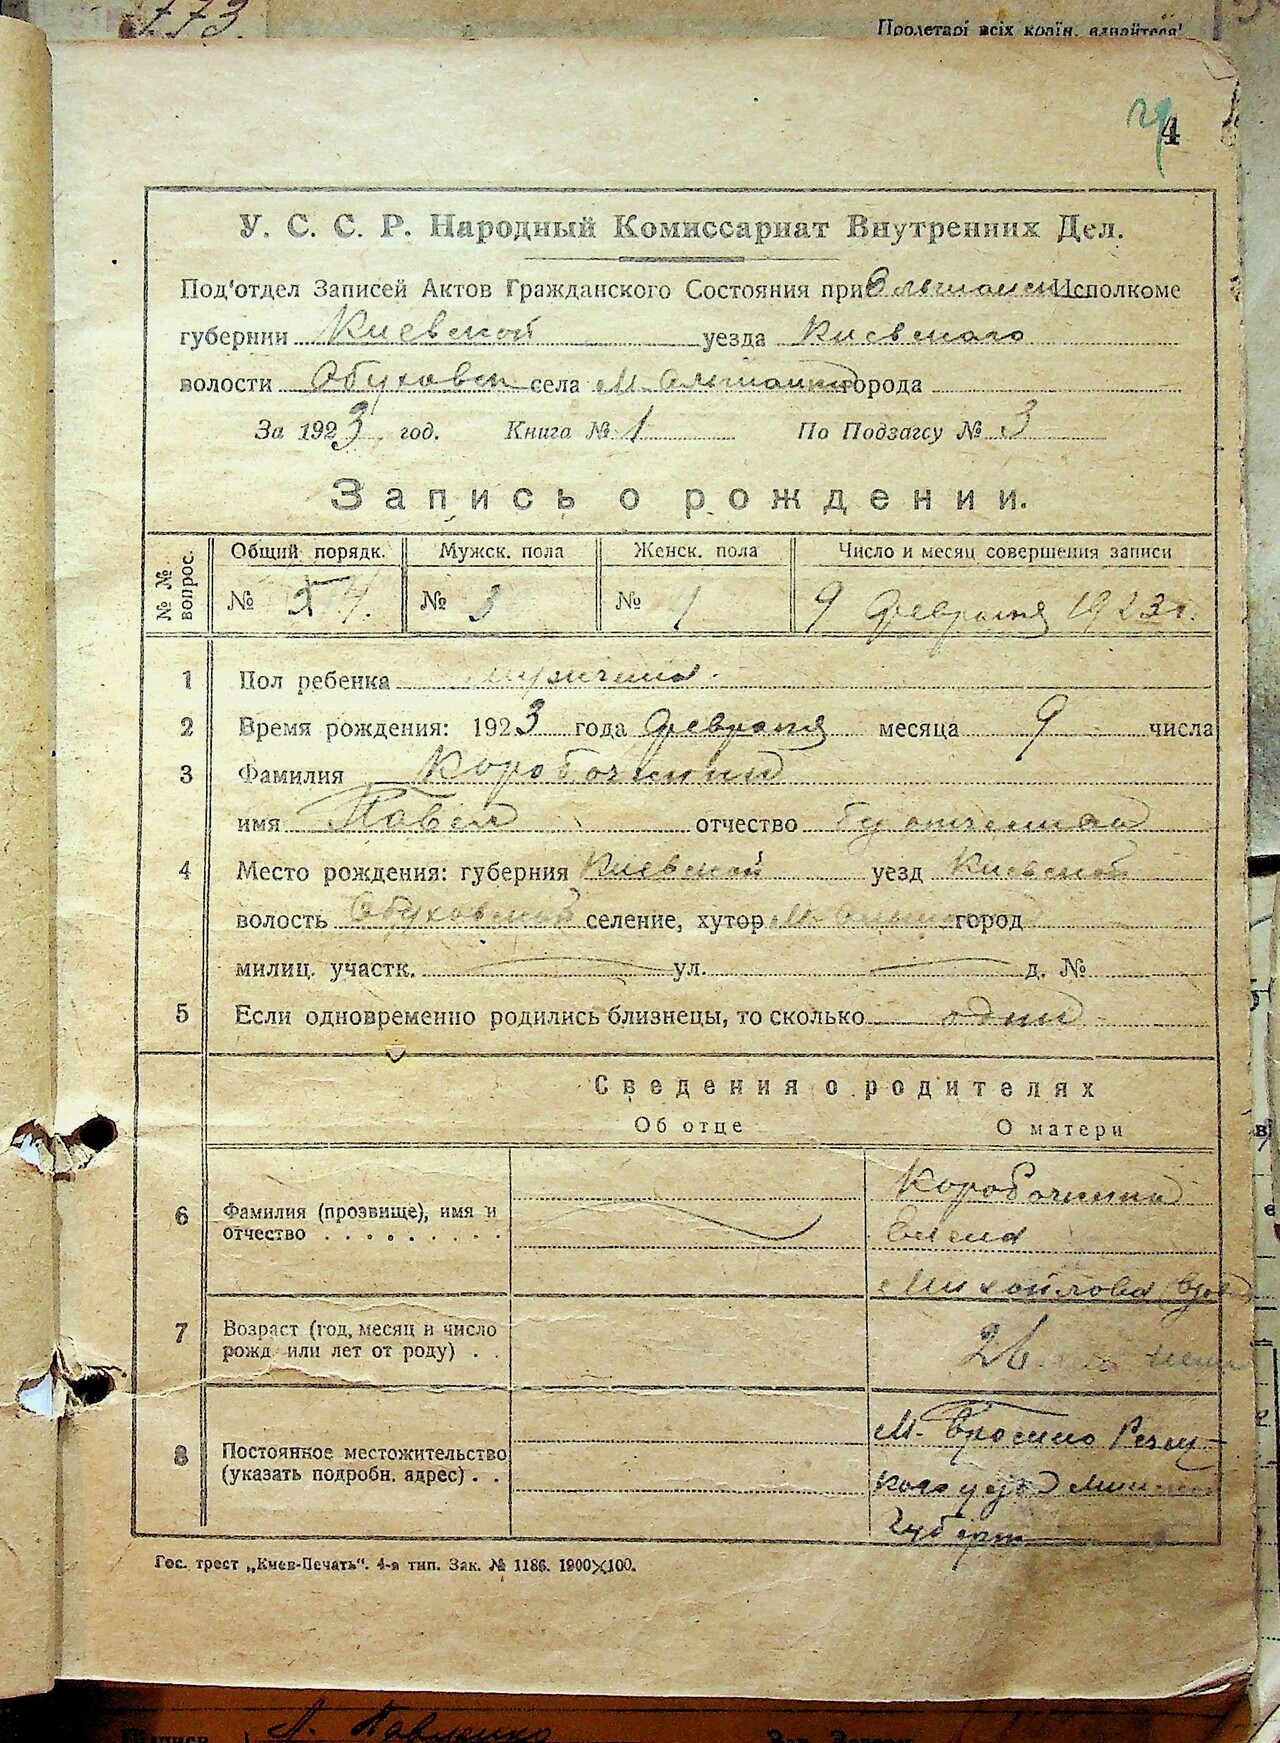 773.
Пролетарі всіх країн, єднайтеся!
4
У. С. С. Р. Народный Комиссариат Внутренних Дел.
Под'отдел Записей Актов Гражданского Состояния при Исполкоме
губернии Киевской уезда Киевского
волости Обуховск села М-Ольшанка города
За 1923 год. Книга № 1 По Подзагсу № 3
Запись о рождении.
№ № вопрос. Общий порядк. Мужск. пола Женск. пола Число и месяц совершения записи
№ 4. № 3 № 1 9 Февраля 1923 г.
1 Пол ребенка мужчина.
2 Время рождения: 1923 года Февраля месяца 9 числа
3 Фамилия
имя Павел отчество
4 Место рождения: губерния Киевской уезд Киевской
волость Обуховской селение, хутор город
милиц. участк. — ул. — д. №
5 Если одновременно родились близнецы, то сколько один
Сведения о родителях
Об отце О матери
6 Фамилия (прозвище), имя и
отчество . . . . . . . . .
Елена
Михайлова
7 Возраст (год, месяц и число
рожд или лет от роду) . . 26
8 Постоянное местожительство
(указать подробн. адрес) . .
М-
уезда Минской
Губерн
Гос. трест „Киев-Печать“. 4-я тип. Зак. № 1186. 1900×100.
Павленко